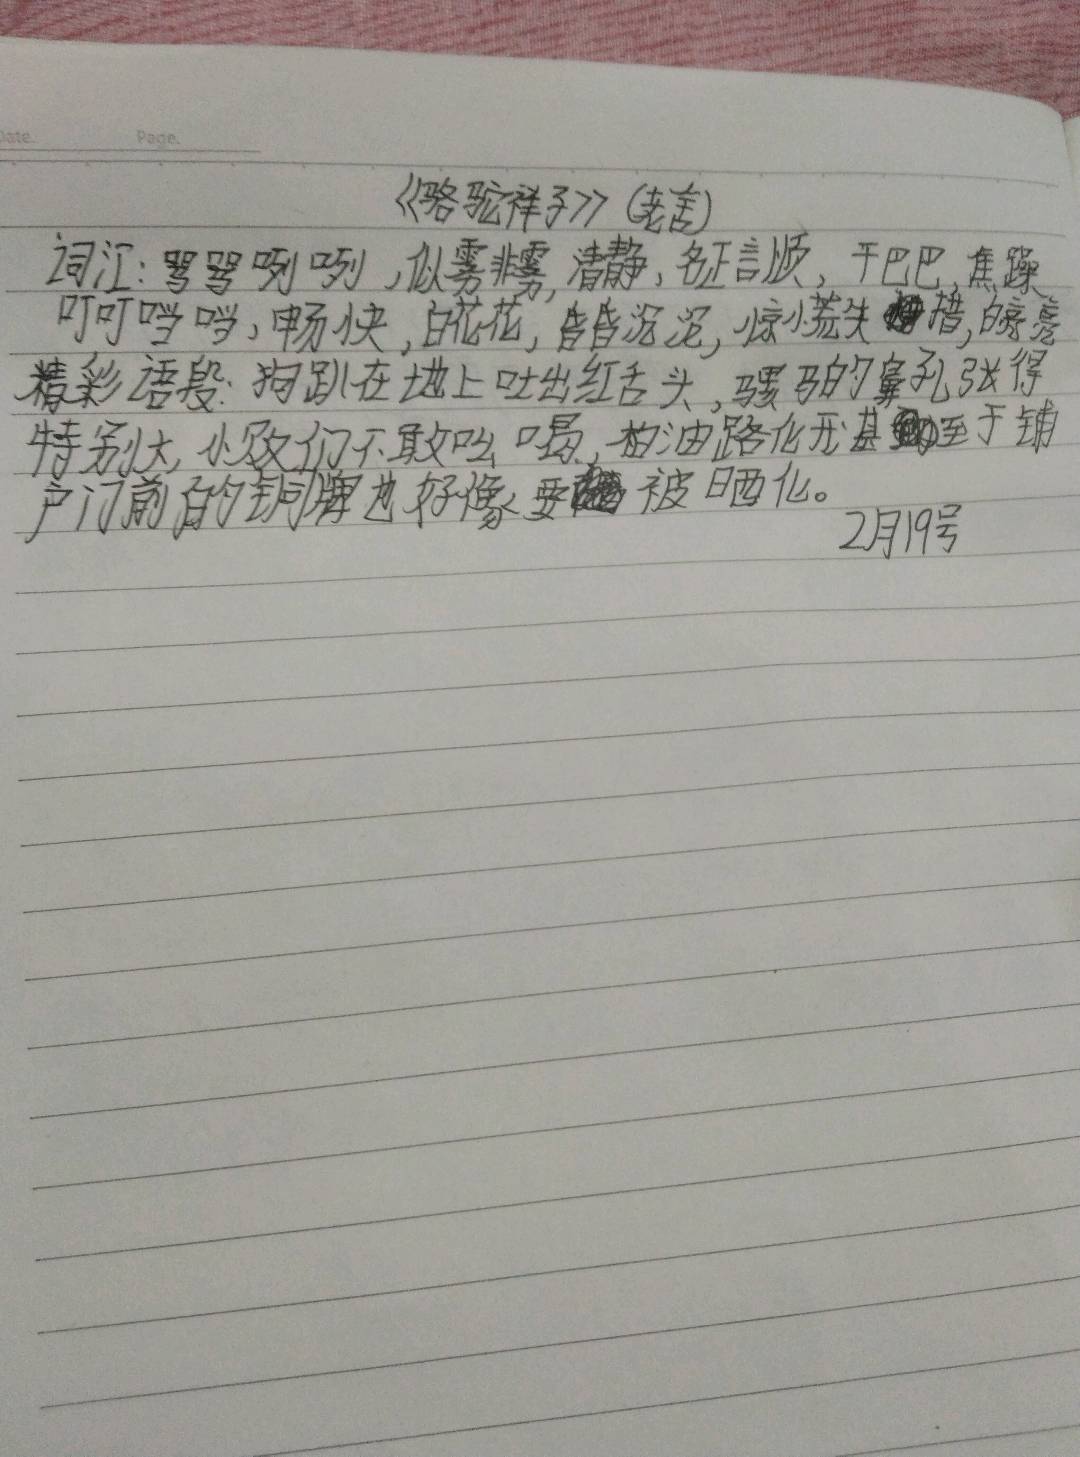 Date.
Page.
《骆驼祥子》（老舍）
词汇：骂骂咧咧，似雾非雾，清静，名正言顺，干巴巴，焦躁
叮叮当当，畅快，白花花，昏昏沉沉，惊慌失措，嘹亮
精彩语段：狗趴在地上吐出红舌头，骡马的鼻孔张得
特别大，小贩们不敢吆喝，柏油路化开甚至于铺
户门前的铜牌也好像要被晒化。
2月19号